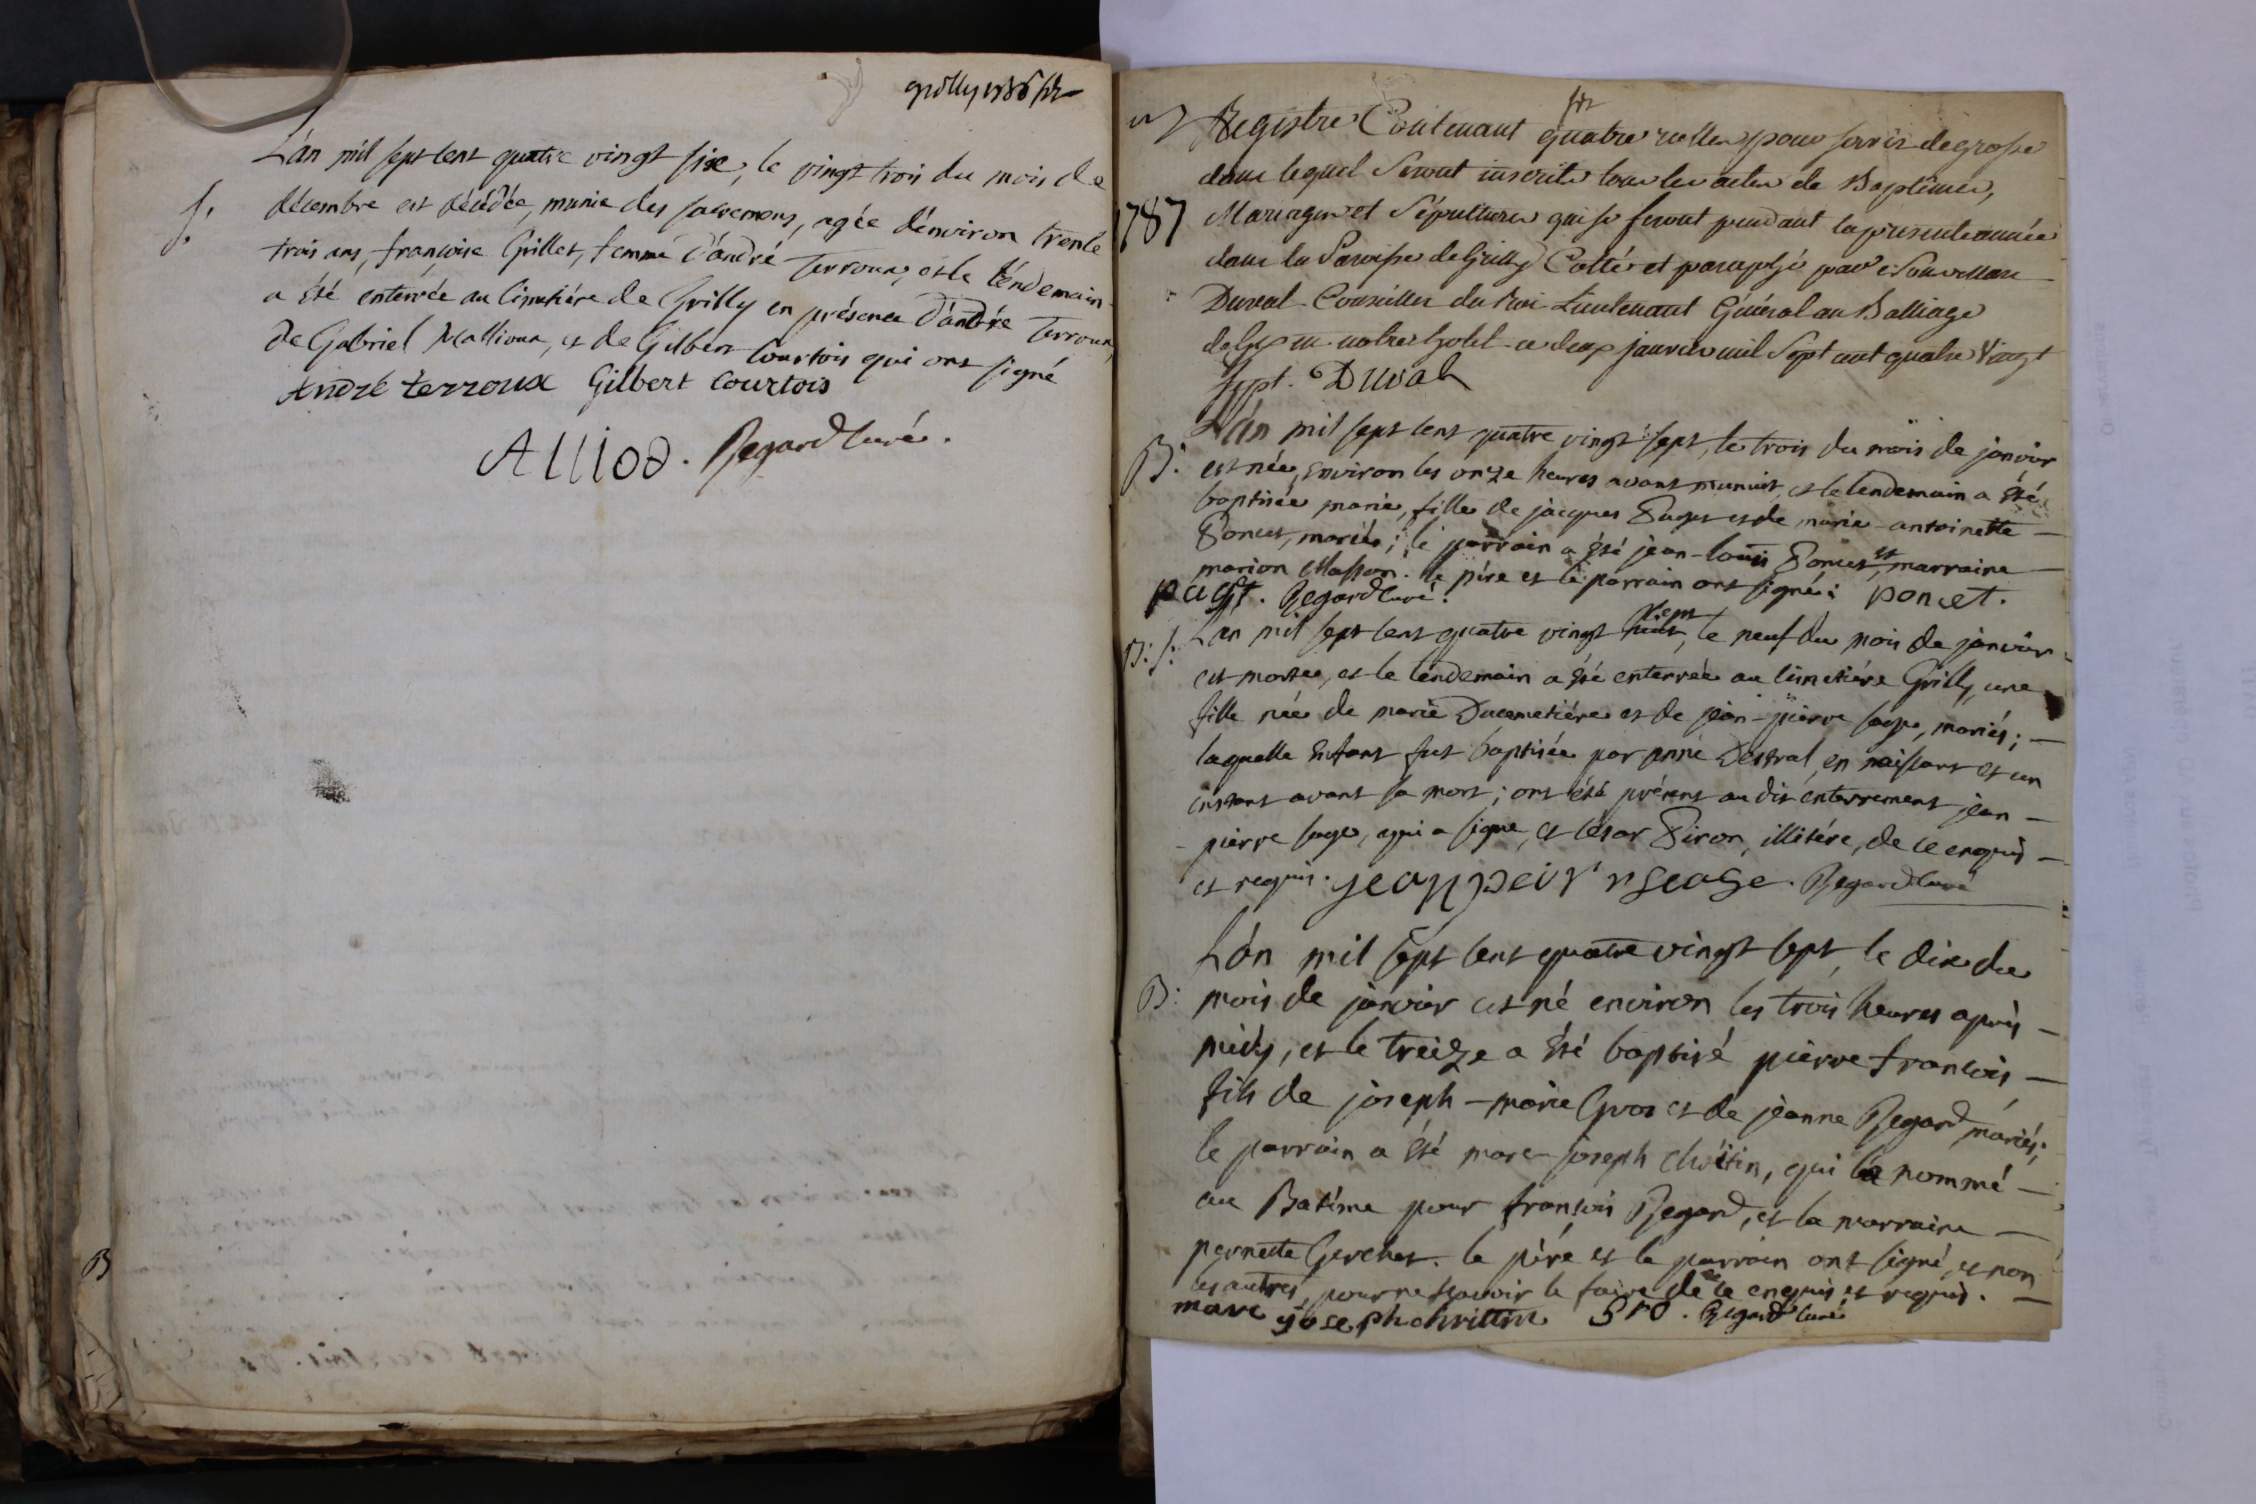 grilly 1786
L'an mil sept cent quatre vingt six, le vingt trois du mois de
S:
décembre est décédée, munie des sacremens, agée d'environ trente
trois ans, françoise Grillet, femme d'andré Terroux, et le lendemain
a été enterrée au Cimetière de Grilly en présence d'andré Terroux,
de Gabriel Mallioux, et de Gilbert Courtois qui ont signé
André terroux Gilbert Courtois
Alliod. Regard Curé.
Registre Contenant quatre rolles pour servir de grosse
dans lequel seront inscrits tous les actes de Baptêmes,
1787
Mariages et Sépultures qui se feront pendant la presente année
dans la Paroisse de Grilly Cotté et paraphé par
Duval Conseiller du Roi Lieutenant Général au Balliage
de Gex en notre hotel ce deux janvier mil sept cent quatre vingt
sept. Duval
L'an mil sept cent quatre vingt sept, le trois du mois de janvier
B:
est née, environ les onze heures avant minuit, et le lendemain a été
baptisée marie, fille de jacques et de marie-antoinette
Poncet, mariés; le parrain a été jean-louis Poncet, et marraine
marion Masson. le père et le parrain ont signé: poncet.
Regard Curé.
B: S:
L'an mil sept cent quatre vingt sept, le neuf du mois de janvier
est morte, et le lendemain a été enterrée au cimetière Grilly, une
fille née de marie Ducimetière et de jean-pierre sage, mariés;
laquelle enfant fut baptisée par anne Destral, en naissant et un
instant avant sa mort; ont été présens au dit enterrement jean
pierre sage, qui a signé, et cesar Piron, illitére, de ce enquis
et requis. Regard Curé
L'an mil sept cent quatre vingt sept, le dix du
B:
mois de janvier est né environ les trois heures après
midy, et le treize a été baptisé pierre françois
fils de joseph-marie Gros et de jeanne Regard mariés;
le parrain a été marc-joseph Chrétin, qui l'a nommé
au Batême pour françois Regard, et la marraine
pernette Gerchet. le père et le parrain ont signé, et non
les autres, pour ne sçavoir le faire de ce enquis et requis.
marc joseph chrittin Gro. Regard Curé